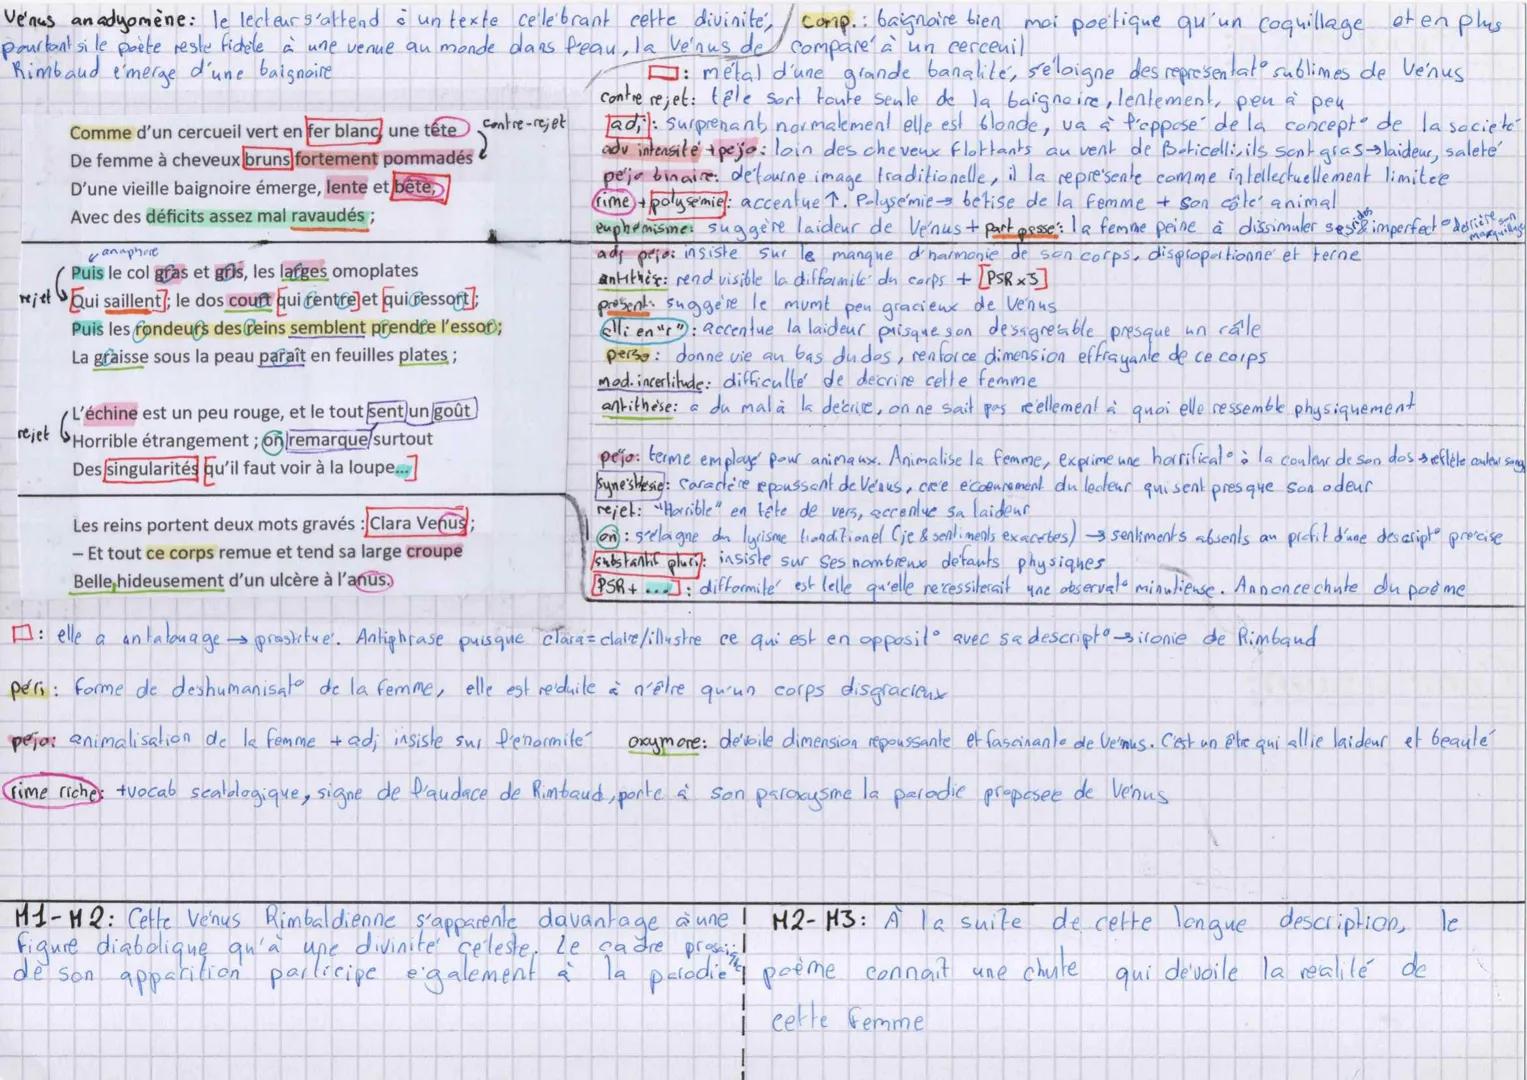 Vénus anadyomène: le lecteur s'attend à un texte célébrant cette divinité,
pourtant si le poète reste fidèle à une venue au monde dans l'eau, la Vénus de
Rimbaud émerge d'une baignoire
comp.: baignoire bien moi poétique qu'un coquillage et en plus
comparé à un cerceuil
: métal d'une grande banalité, s'éloigne des representat° sublimes de Vénus
contre rejet: tête sort toute seule de la baignoire, lentement, peu à peu
adj: surprenant, normalement elle est blonde, va à l'opposé de la concept° de la société
adv intensité + péjo: loin des cheveux flottants au vent de Boticelli, ils sont gras → laideur, saleté
péjo binaire: détourne image traditionelle, il la représente comme intellectuellement limitée
rime + polysémie: accentue ↑. Polysémie → bêtise de la femme + son côté animal
euphémisme: suggère laideur de Vénus + part passé: la femme peine à dissimuler ses rides & imperfect° derrière son maquillage
Comme d'un cercueil vert en fer blanc, une tête
contre-rejet
De femme à cheveux bruns fortement pommadés
D'une vieille baignoire émerge, lente et bête,
Avec des déficits assez mal ravaudés ;
anaphore
Puis le col gras et gris, les larges omoplates
rejet
Qui saillent ; le dos court qui rentre et qui ressort ;
Puis les rondeurs des reins semblent prendre l'essor ;
La graisse sous la peau paraît en feuilles plates ;
adj péjo: insiste sur le manque d'harmonie de son corps, disproportionné et terne
antithèse: rend visible la difformité du corps + [PSR x3]
présent: suggère le mvmt peu gracieux de Vénus
alli en "r": accentue la laideur puisque son désagréable presque un râle
perso: donne vie au bas du dos, renforce dimension effrayante de ce corps
mod. incertitude: difficulté de décrire cette femme
antithèse: a du mal à la décrire, on ne sait pas réellement à quoi elle ressemble physiquement
L'échine est un peu rouge, et le tout sent un goût
rejet
Horrible étrangement ; on remarque surtout
Des singularités qu'il faut voir à la loupe...
péjo: terme employé pour animaux. Animalise la femme, exprime une horrificat° à la couleur de son dos → reflète couleur sang
Synesthésie: Caractère repoussant de Vénus, crée écoeurement du lecteur qui sent presque son odeur
rejet: "Horrible" en tête de vers, accentue sa laideur
on: s'éloigne du lyrisme traditionel (je & sentiments exacerbés) → sentiments absents au profit d'une descript° précise
substantif pluri: insiste sur ses nombreux défauts physiques
[PSR + ...]: difformité est telle qu'elle necessiterait une observat° minutieuse. Annonce chute du poème
Les reins portent deux mots gravés : Clara Venus ;
– Et tout ce corps remue et tend sa large croupe
Belle hideusement d'un ulcère à l'anus.
: elle a un tatouage → prostitué. Antiphrase puisque clara = claire/illustre ce qui est en opposit° avec sa descript° → ironie de Rimbaud
péri: forme de deshumanisat° de la femme, elle est réduite à n'être qu'un corps disgracieux
péjo: animalisation de la femme + adj insiste sur l'énormité
oxymore: dévoile dimension repoussante et fascinante de Vénus. C'est un être qui allie laideur et beauté
rime riche: + vocab scatologique, signe de l'audace de Rimbaud, porte à son paroxysme la parodie proposée de Vénus
M1-M2: Cette Vénus Rimbaldienne s'apparente davantage à une
figure diabolique qu'à une divinité céleste. Le cadre prosaïque
de son apparition participe également à la parodie
M2-M3: À la suite de cette longue description, le
poème connaît une chute qui dévoile la réalité de
cette femme